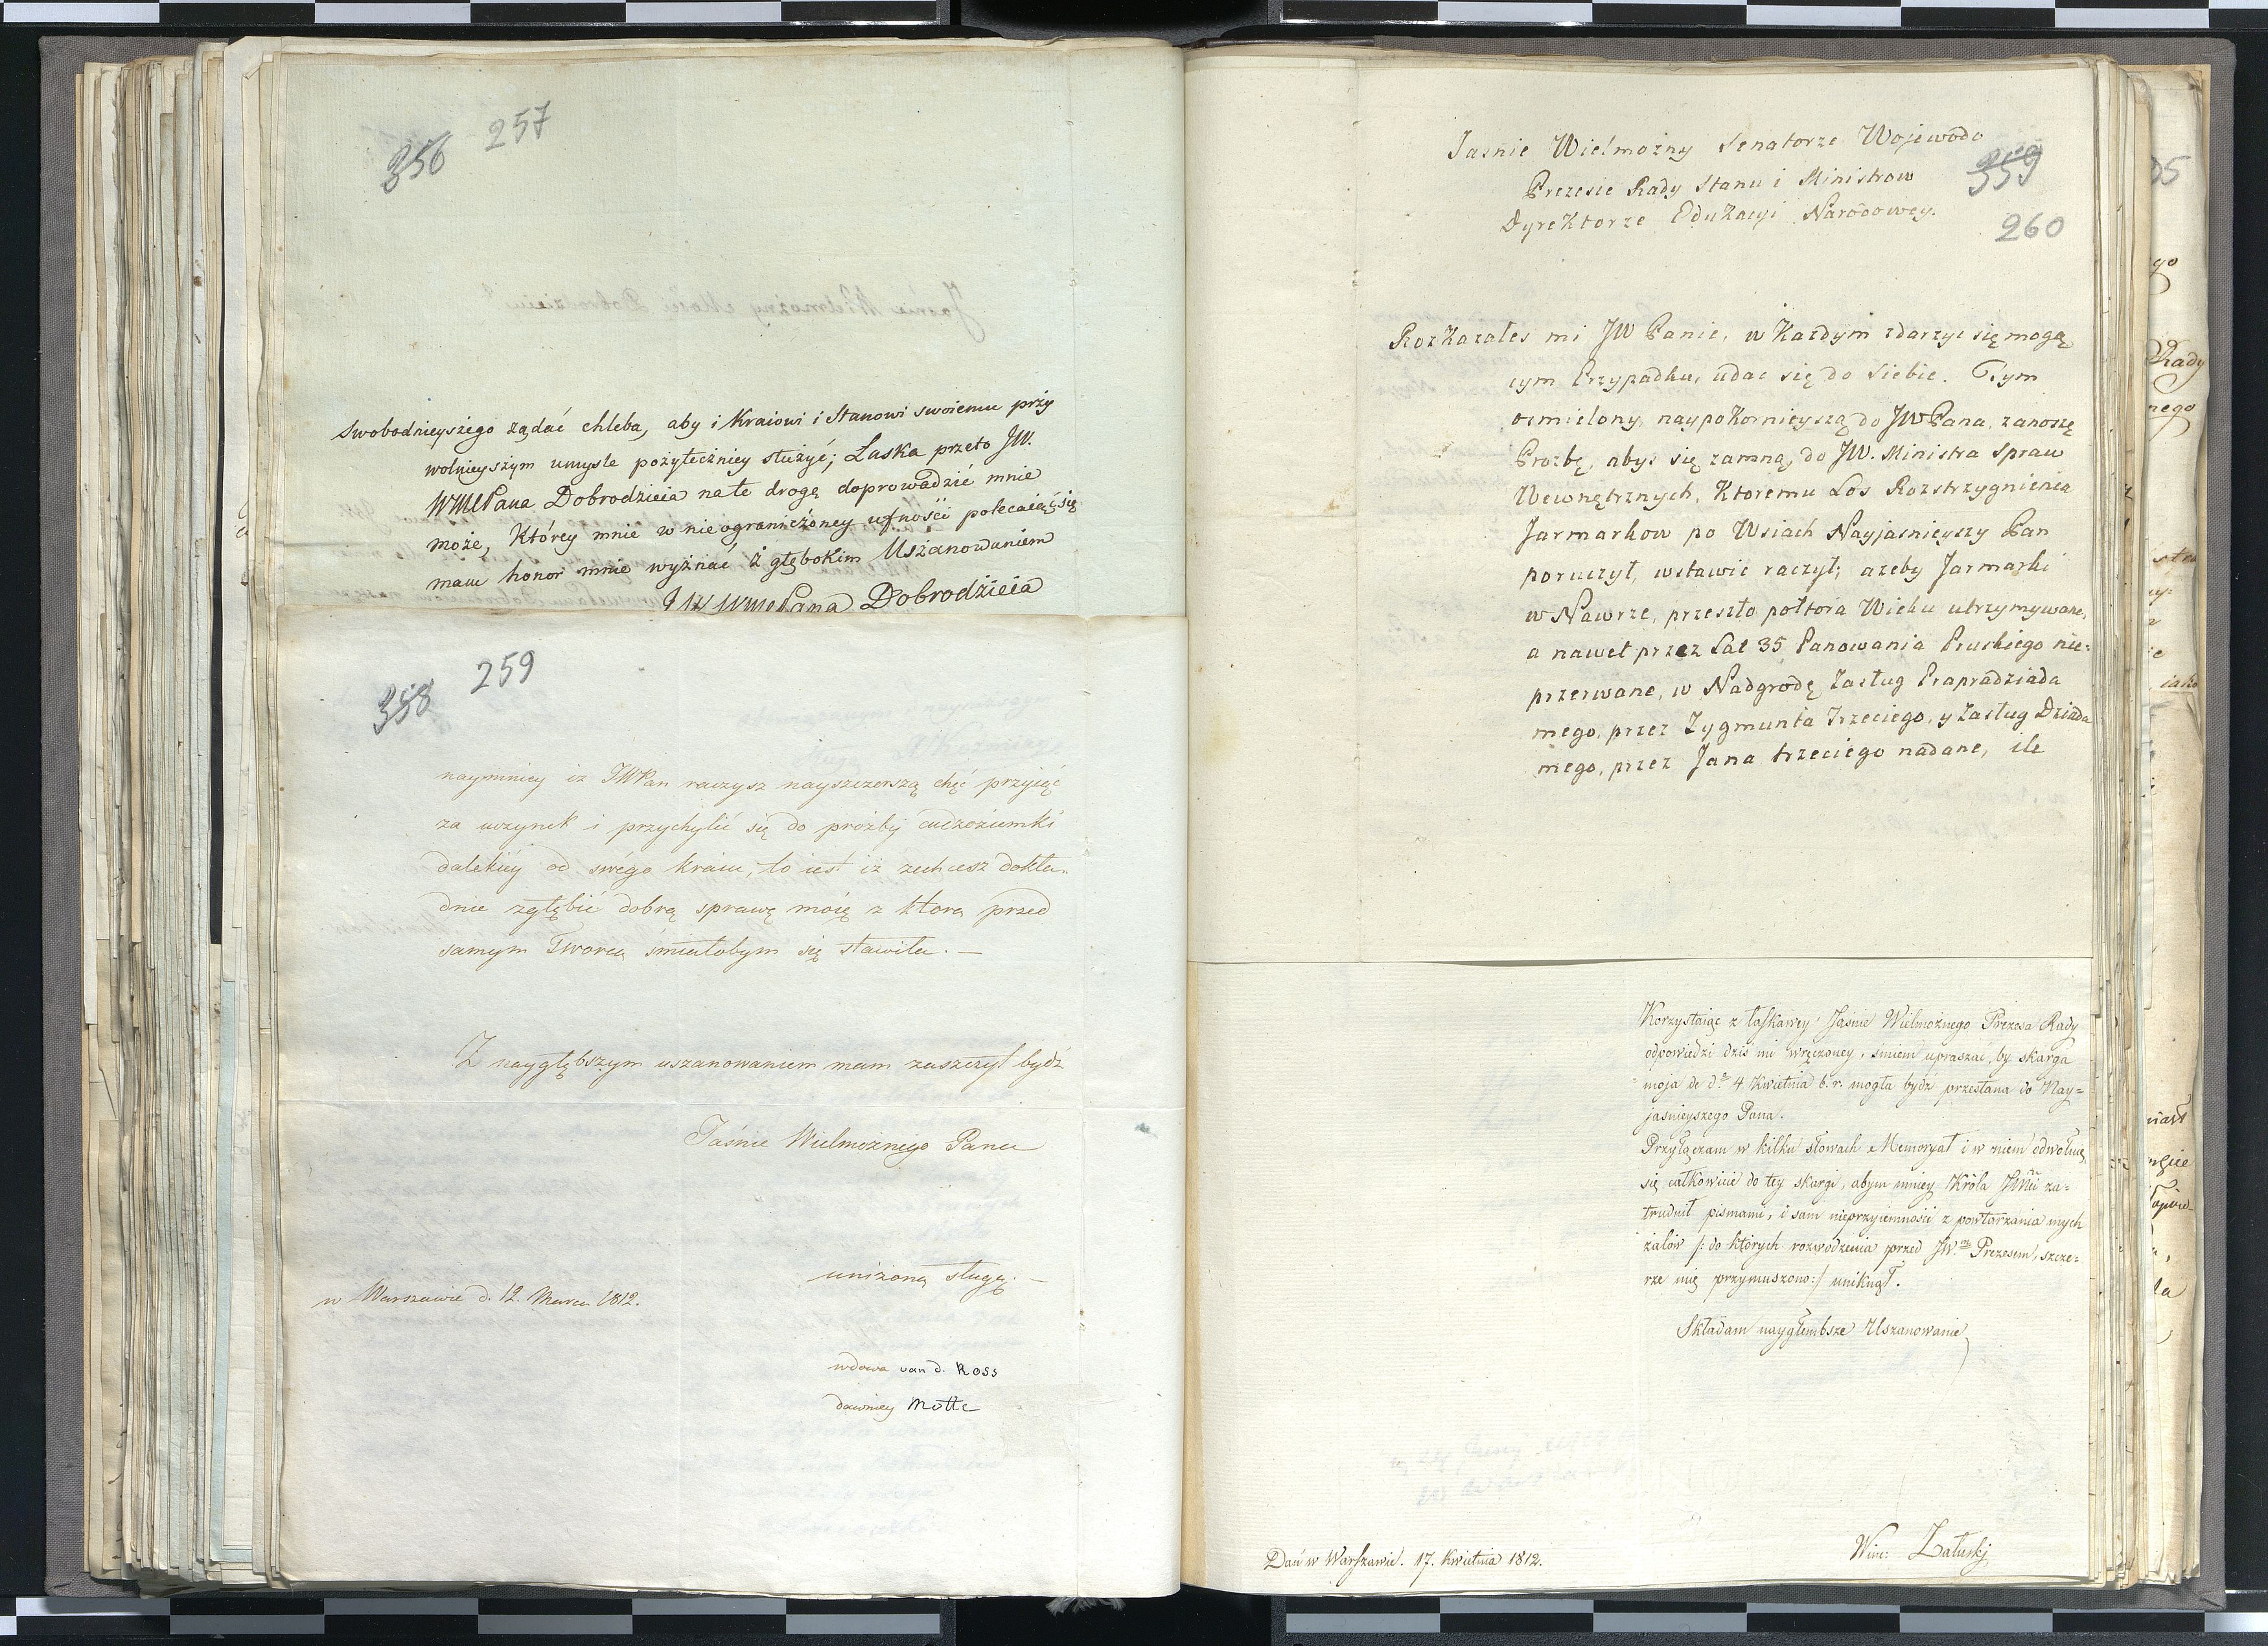 257
356
swobodnieyszego żądać chleba, aby i Kraiowi i Stanowi swoiemu przy
wolnieyszym umysle pożyteczniey służyć; Łaska przeto JW.
WMPana Dobrodzieia na te drogę doprowadzić mnie
może, Którey mnie w nieograniczoney ufności polecaiąc się
mam honor mnie wyznać z głębokim Uszanowaniem
JW WMPana Dobrodzieia
259
358
naymniey iż JWPan raczysz nayszczerszą chęć przyjąć
za uczynek i przychylić się do proźby cudzoziemki
dalekiéy od swégo kraiu, to iest iż zechcesz dokła-
dnie zgłębić dobrą sprawę moię z ktorą przed
samym Tworcą śmiałobym się stawiła. —
Z naygłębszym uszanowaniem mam zaszczyt bydź
Jaśnie Wielmożnego Pana
uniżoną sługą. —
w Warszawie d. 12. Marca 1812.
wdowa van d. Ross
dawniey Motte
Jasnie Wielmożny Senatorze Wojewodo
Prezesie Rady Stanu i Ministrow
Dyrektorze Edukacyi Narodowey.
359
260
Rozkazałes mi JW Panie, w Każdym zdarzyc się mogą
cym Przypadku, udac się do Siebie. Tym
osmielony, naypokornieyszą do JWPana, zanoszę
Prozbę, abys się zamną, do JW. Ministra Spraw
Wewnętrznych, Ktoremu Los Rozstrzygnienia
Jarmarkow po Wsiach Nayjasnieyszy Pan
poruczył, wstawic raczył; azeby Jarmarki
w Nawrze, przeszło połtora Wieku utrzymywane,
a nawet przez Lat 35 Panowania Pruskiego nie-
przerwane, w Nadgrodę Zasług Prapradziada
mego, przez Zygmunta Trzeciego, y Zasług Dziada
mego, przez Jana trzeciego nadane, ile
Korzystaiąc z łaskawey Jaśnie Wielmożnego Prezesa Rady
odpowiedzi dziś mi wręczoney, śmiem upraszać, by skarga
moja de do 4 Kwietnia b.r. mogła bydź przesłana do Nay=
jaśnieyszego Pana.
Przyłączam w kilku słowach Memoryał i w niem odwołuię
się całkowicie do tey skargi, abym mniey Króla JMci za=
trudnił pismami, i sam nieprzyiemności z powtarzania mych
żalów /: do których rozwodzenia przed JW. Prezesem, szcze=
rze mię przymuszono:/ uniknął.
Składam naygłembsze Uszanowanie
Dań w Warszawie. 17. Kwietnia 1812.
Winc: Załuskj